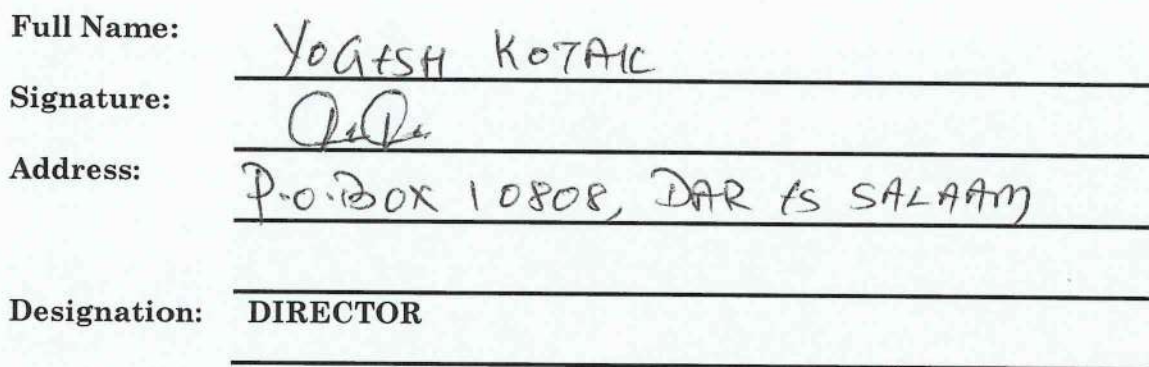 Full Name: YOGESH KOTAK
Signature:
Address: P.O.BOX 10808, DAR ES SALAAM
Designation: DIRECTOR